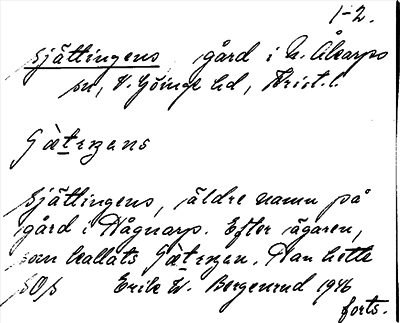 1-2.
Sjättingens gård i N. Åkarps
sn, V. Göinge hd, Krist. l.
Sjättingens, äldre namn på
gård i Hågnarp. Efter ägaren,
som kallats. Han hette
Erik W. Bergenrud 1946
forts.